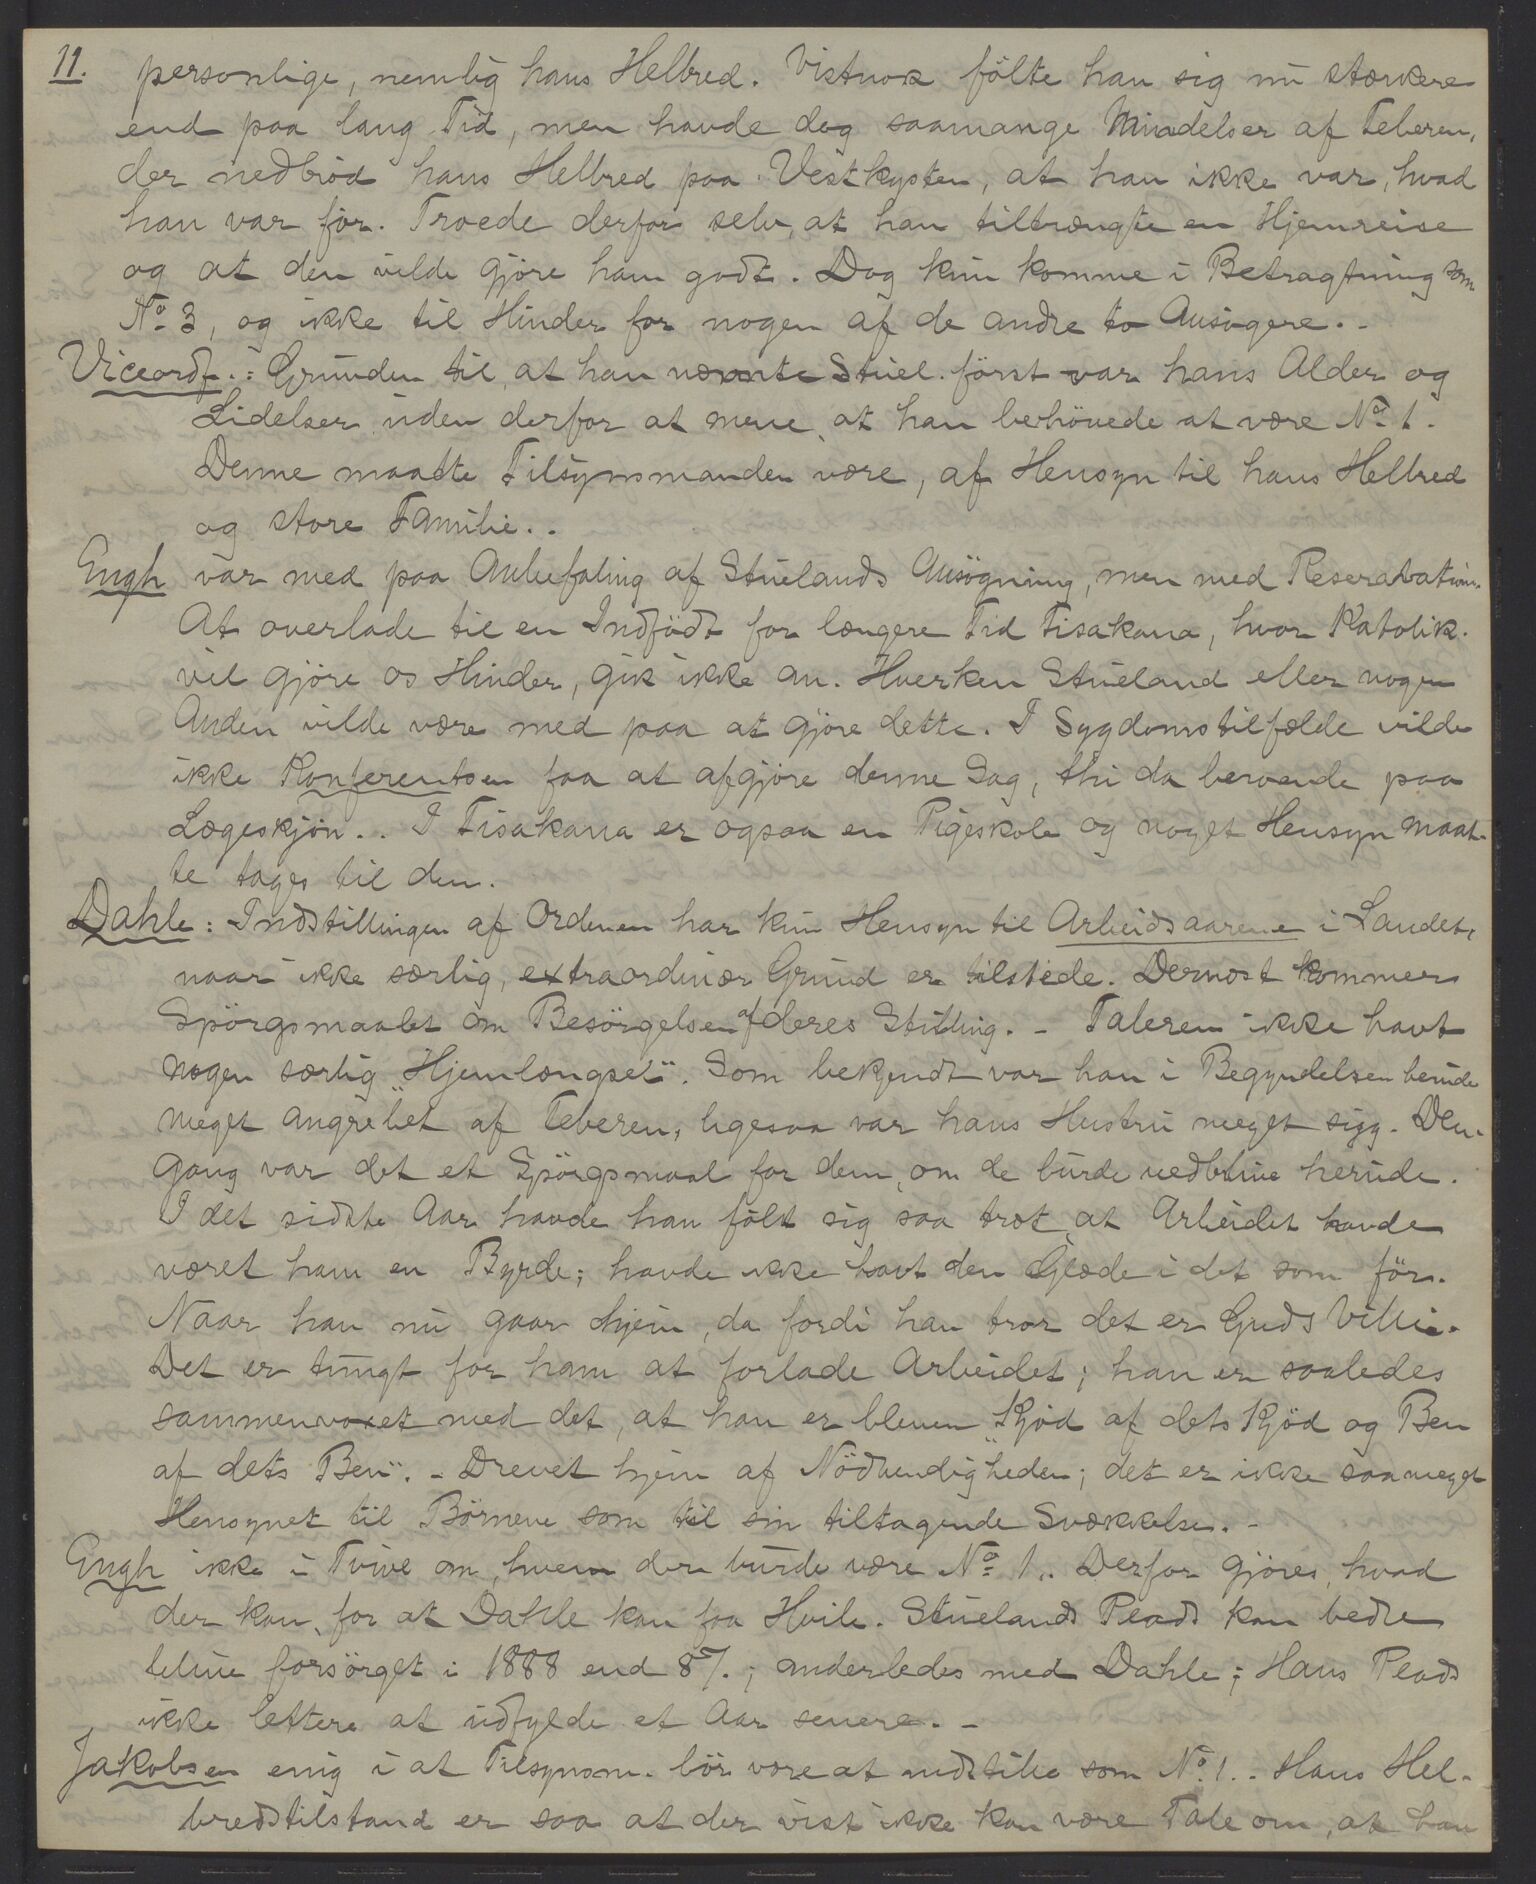 11. personlige, nemlig hans Helbred. Vistnok fölte han sig nu stærkere
end paa lang Tid, men havde dog saamange Mindelser af Feberen,
der nedbröd hans Helbred paa Vestkysten, at han ikke var, hvad
han var för. Troede derfor selv, at han tiltrængte en Hjemreise
og at den vilde gjöre ham godt. Dog kun komme i Betragtning som
No 3, og ikke til Hinder for nogen af de andre to Ansögere. -
Viceordf.: Grunden til, at han nævnte Stuel. först var hans Alder og
Lidelser uden derfor at mene, at han behövede at være No 1.
Denne maatte Tilsynsmanden være, af Hensyn til hans Helbred
og store Familie. .
Engh var med paa Anbefaling af Stuelands Ansögning, men med Reservation.
At overlade til en Indfödt for længere Tid Fisakana, hvor Katolik.
vil gjöre os Hinder, gik ikke an. Hverken Stueland eller nogen
Anden vilde være med paa at gjöre dette. I Sygdomstilfælde vilde
ikke Konferentsen faa at afgjöre denne Sag, thi da beroende paa
Lægeskjön. . I Fisakana er ogsaa en Pigeskole og noget Hensyn maat-
te tages til den.
Dahle: Indstillingen af Ordenen har kun Hensyn til Arbeidsaarene i Landet,
naar ikke særlig, extraordinær Grund er tilstede. Dernæst kommer
Spörgsmaalet om Besörgelsen af deres Stilling. - Taleren ikke havt
nogen særlig "Hjemlængsel". Som bekjendt var han i Begyndelsen herude
meget angrebet af Feberen, ligesaa var hans Hustru meget syg. Den-
gang var det et Spörgsmaal for dem, om de burde vedblive herude.
I det sidste Aar havde han fölt sig saa træt, at Arbeidet havde
været ham en Byrde; havde ikke havt den Glæde i det som för.
Naar han nu gaar hjem, da fordi han tror det er Guds Villie.
Det er tungt for ham at forlade Arbeidet; han er saaledes
sammenvoxet med det, at han er bleven "Kjöd af dets Kjöd og Ben
af dets Ben". - Drevet hjem af Nödvendigheden; det er ikke saameget
Hensynet til Börnene som til sin tiltagende Svækkelse. -
Engh ikke i Tvivl om, hvem der burde være No 1. . Derfor gjöres, hvad
der kan, for at Dahle kan faa Hvile. Stuelands Plads kan bedre
blive forsörget i 1888 end 87.; anderledes med Dahle; Hans Plads
ikke lettere at udfylde et Aar senere. -
Jakobsen enig i at Tilsynsm. bör være at indstille som No 1. - Hans Hel-
bredstilstand er saa at der vist ikke kan være Tale om, at han